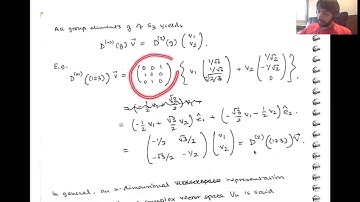 All group elements g of S3 yields
D^(n)(g) v⃗ = D^(2)(g) ( v1 v2 )
E.g.
D^(n)((123)) v⃗ = ( 0 0 1 ; 1 0 0 ; 0 1 0 ) { v1 ( 1/√6 ; 1/√6 ; ) + v2 ( 1/√2 ; -1/√2 ; 0 ) }
= ( -1/2 v1 + √3/2 v2 ) ê1 + ( -√3/2 v1 - 1/2 v2 ) ê2
= ( -1/2 √3/2 ; -√3/2 -1/2 ) ( v1 v2 ) = D^(2)((123)) v⃗
In general, an n-dimensional representation
complex vector space Vn is said